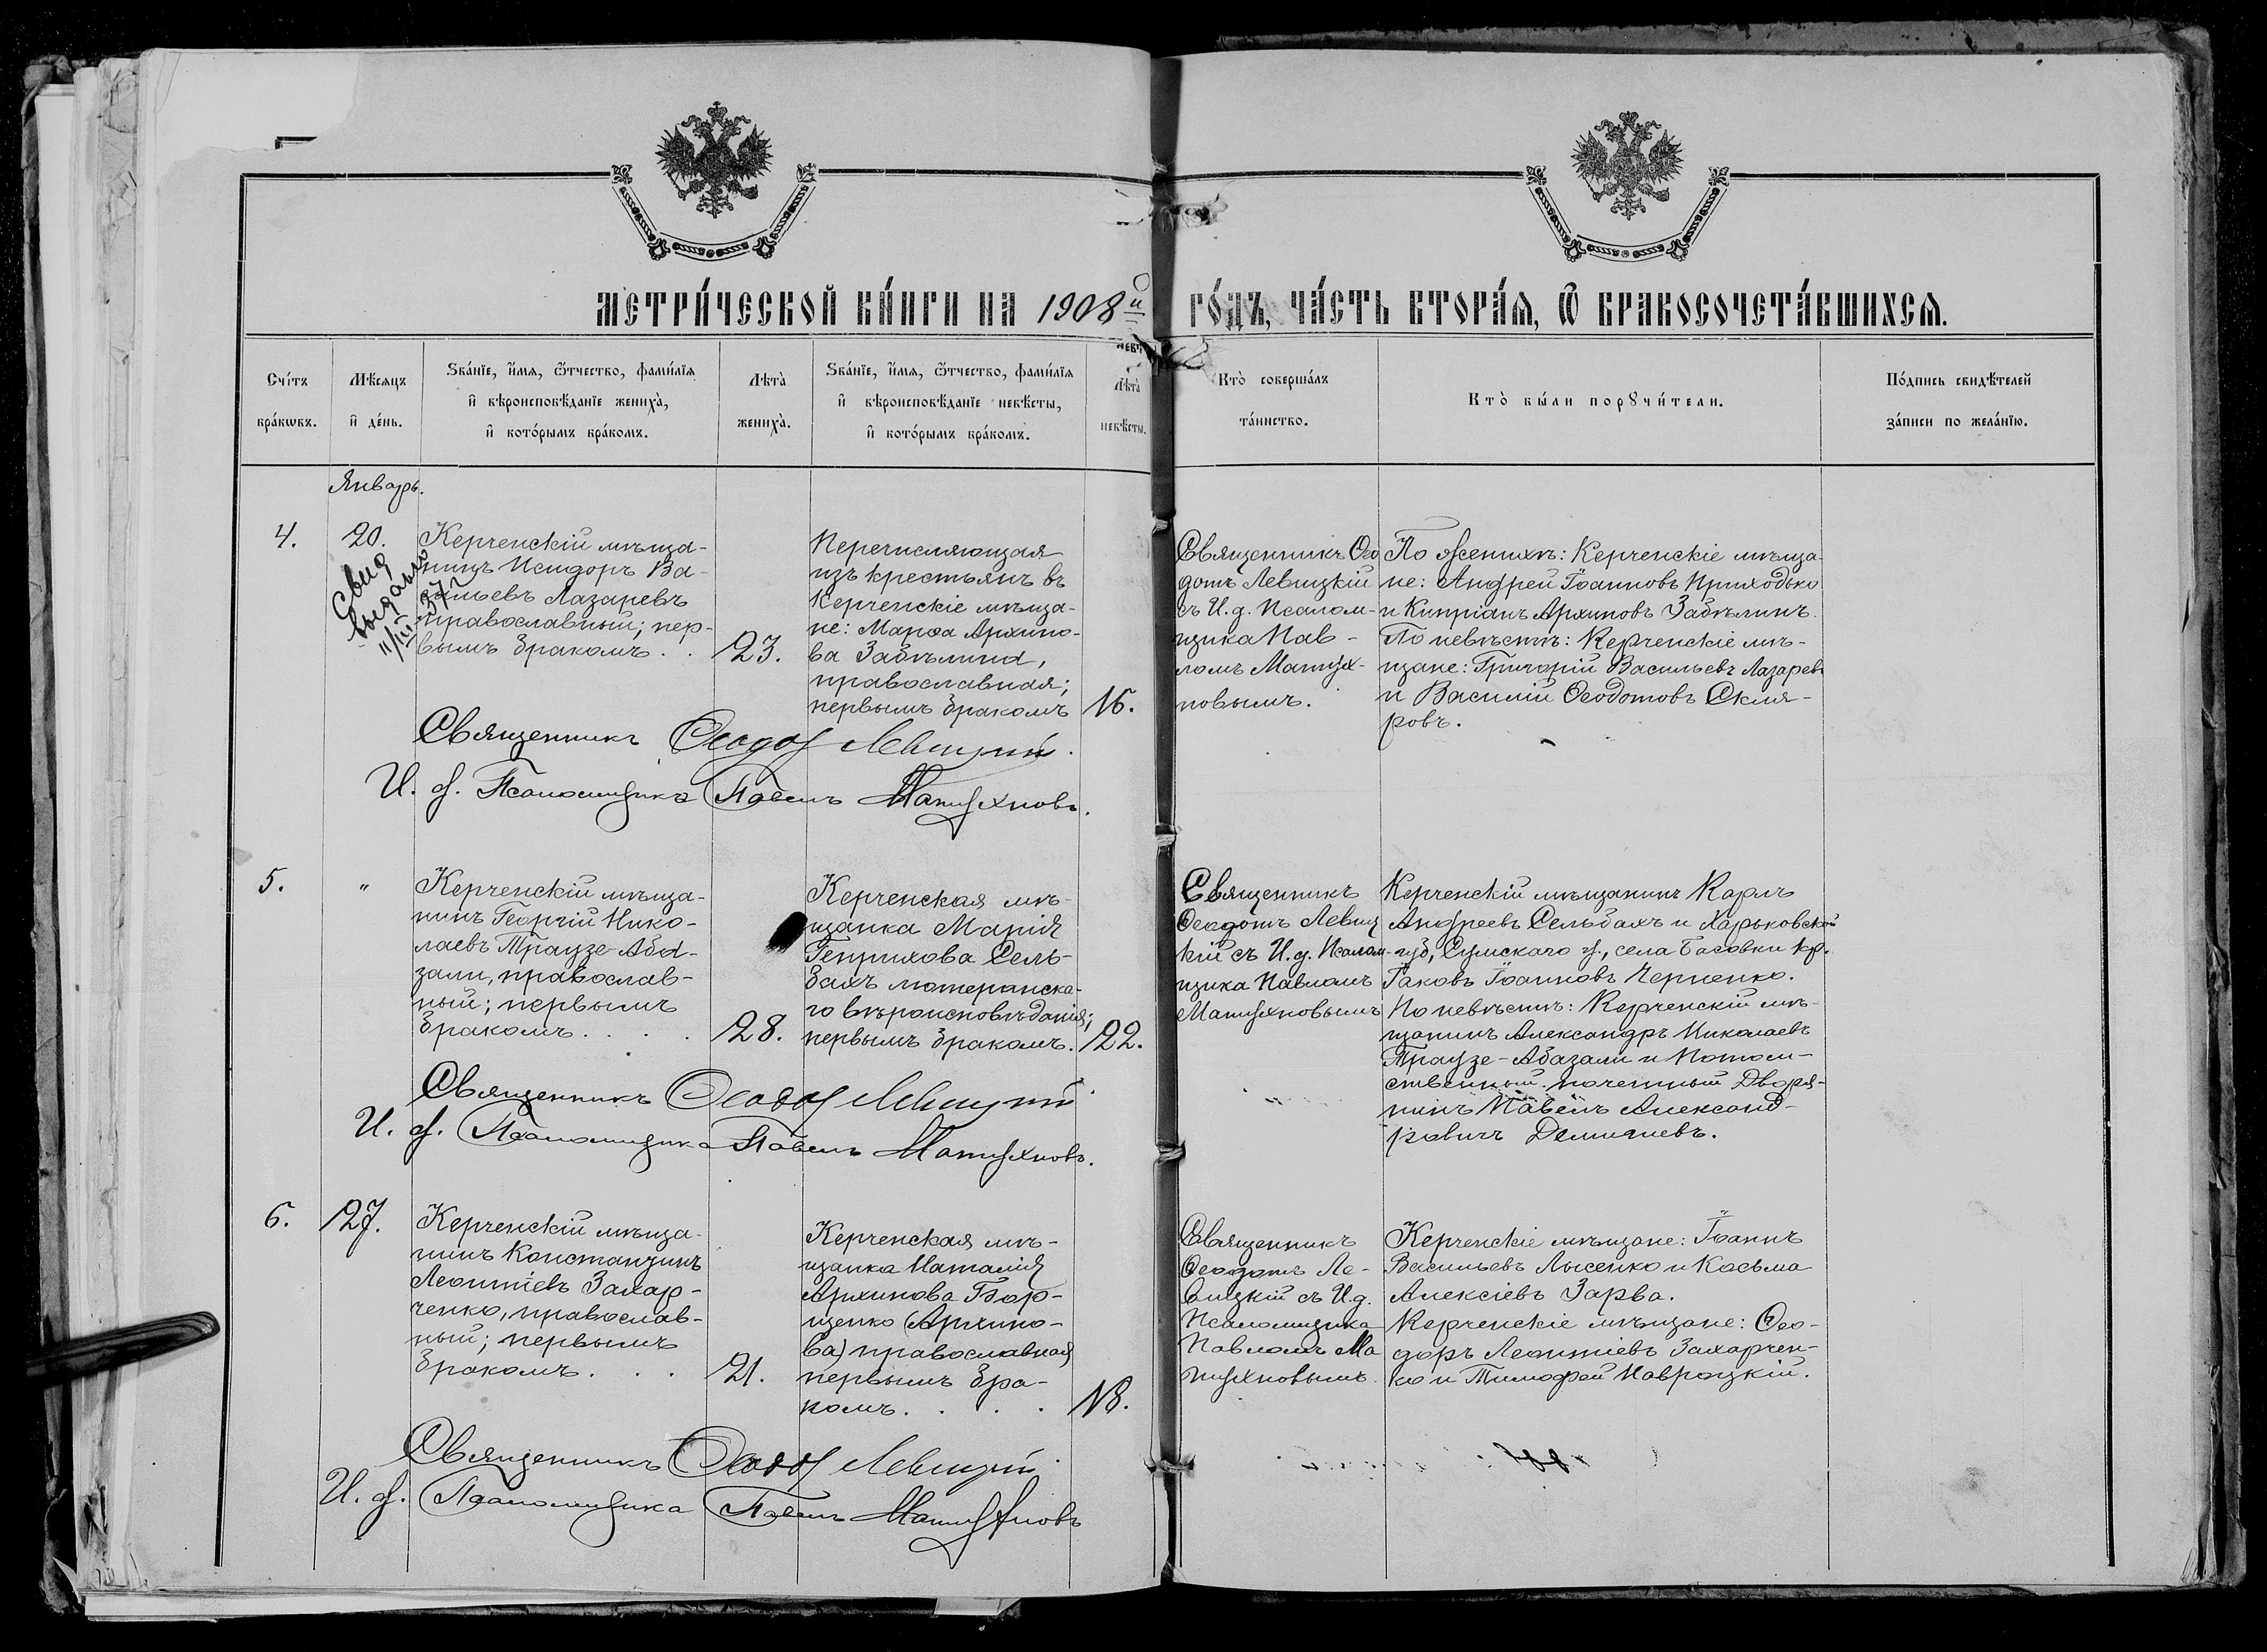 МЕТРИ́ЧЕСКОЙ КНИ́ГИ НА 1908й ГО́ДЪ, ЧА́СТЬ ВТОРА́Я, Ѿ БРАКОСОЧЕТА́ВШИХСЯ.
Сче́тъ бра́кѡвъ.
Мѣ́сяцъ и҆ де́нь.
Ѕва́нїе, и҆́мя, ѻ҆́тчество, фами́лїя
и҆ вѣроисповѣ́данїе жениха̀,
и҆ кото́рымъ бра́комъ.
Лѣта̀ жениха̀.
Ѕва́нїе, и҆́мя, ѻ҆́тчество, фами́лїя
и҆ вѣроисповѣ́данїе невѣ́сты,
и҆ кото́рымъ бра́комъ.
Лѣта̀ невѣ́сты.
Кто̀ соверша́лъ
та́инство.
Кто̀ бы́ли порꙋчи́тели.
По́дпись свидѣ́телей
за́писи по жела́нїю.
Январь.
4.
20.
Свид
выдано
11/III-37г
Керченскій мѣща-
нинъ Исидоръ Ва-
сильевъ Лазаревъ
православный; пер-
вымъ бракомъ . .
23.
Перечисляющаяся
изъ крестьянъ въ
Керченскіе мѣща-
не: Марѳа Архипо-
ва Забѣлина,
православная;
первымъ бракомъ
16.
Священникъ Ѳео
дотъ Левицкій
съ И.д. Псалом-
щика Пав-
ломъ Матух-
новымъ.
По женихѣ: Керченскіе мѣща-
не: Андрей Іоанновъ Приходько
и Кипріанъ Архиповъ Забѣлинъ.
По невѣстѣ: Керченскіе мѣ-
щане: Григорій Васильевъ Лазаревъ
и Василій Ѳеодотовъ Скля-
ровъ.
Священникъ Ѳеодотъ Левицкій.
И. д. Псаломщика Павелъ Матухновъ.
5.
"
Керченскій мѣща-
нинъ Георгій Нико-
лаевъ Траузе-Аба-
зали, православ-
ный; первымъ
бракомъ . . . .
28.
Керченская мѣ-
щанка Марія
Генрихова Сель-
бахъ лютеранска-
го вѣроисповѣданія;
первымъ бракомъ.
22.
Священникъ
Ѳеодотъ Левиц
кій съ И.д. Псалом-
щика Павломъ
Матухновымъ
Керченскій мѣщанинъ Карлъ
Андреевъ Сельбахъ и Харьковской
губ, Сумскаго у., села Басовки кр.
Іаковъ Іоанновъ Черненко.
По невѣстѣ: Керченскій мѣ-
щанинъ Александръ Николаевъ
Траузе-Абазали и Потом-
ственный почетный Дворя-
нинъ Павелъ Александ-
ровичъ
Священникъ Ѳеодотъ Левицкій
И. д. Псаломщика Павелъ Матухновъ.
6.
27.
Керченскій мѣща-
нинъ Константинъ
Леонтіевъ Захар-
ченко, православ-
ный; первымъ
бракомъ . . .
21.
Керченская мѣ-
щанка Наталія
Архипова Бор-
щенко (Архипо-
ва) православная
первымъ бра-
комъ. . . .
18.
Священникъ
Ѳеодотъ Ле-
вицкій съ И.д.
Псаломщика
Павломъ Ма
тухновымъ.
Керченскіе мѣщане: Іоаннъ
Васильевъ Лысенко и Косьма
Алексіевъ Зарва.
Керченскіе мѣщане: Ѳео-
доръ Леонтіевъ Захарчен-
ко и Тимофей Навроцкій.
Священникъ Ѳеодотъ Левицкій.
И. д. Псаломщика Павелъ Матухновъ